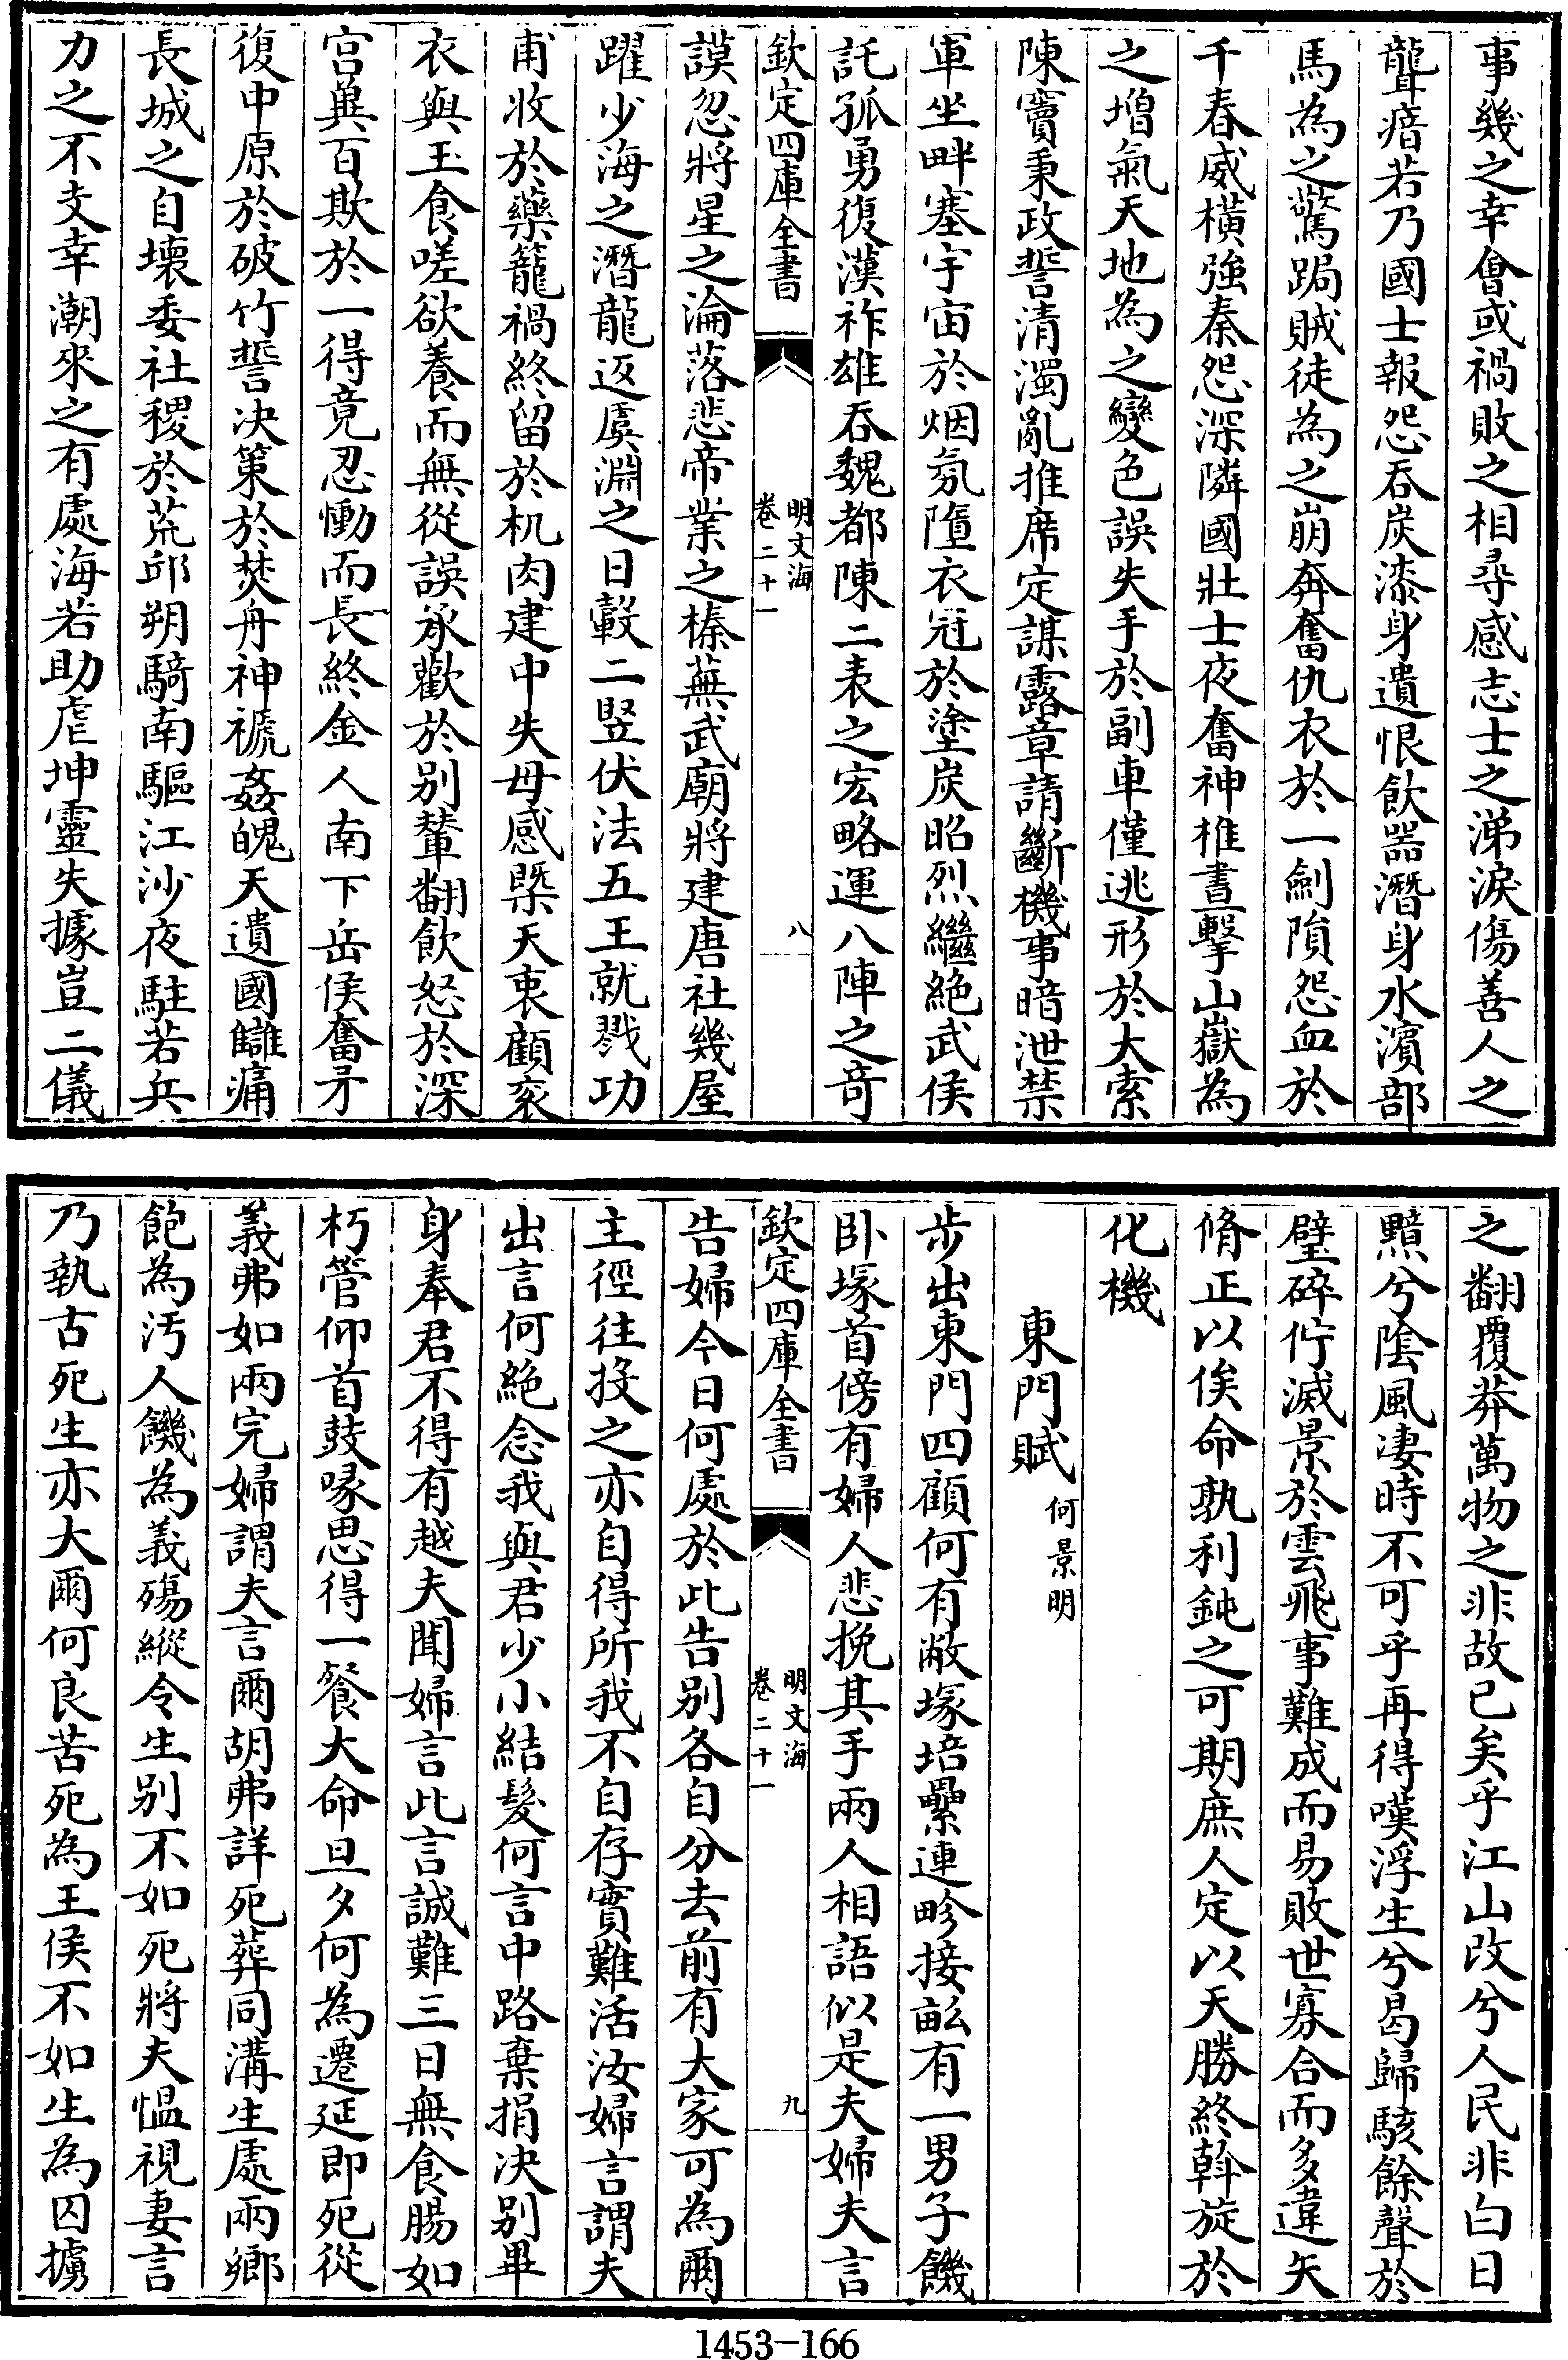 事幾之幸會或禍敗之相尋感志士之涕淚傷善人之
聾瘖若乃國士報怨吞炭漆身遺恨飲器潛身水濱部
馬為之驚跼賊徒為之崩奔奮仇衣於一劍隕怨血於
千春威橫強秦怨深隣國壯士夜奮神椎晝擊山嶽為
之增氣天地為之變色誤失手於副車僅逃形於大索
陳竇秉政誓清濁亂推席定謀露章請斷機事暗泄禁
軍坐畔塞宇宙於烟氛墮衣冠於塗炭昭烈繼絶武侯
託孤勇復漢祚雄吞魏都陳二表之宏略運八陣之奇
欽定四庫全書
明文海
卷二十一
八
謨忽將星之淪落悲帝業之榛蕪武廟將建唐社幾屋
躍少海之潛龍返虞淵之日轂二竪伏法五王就戮功
甫收於藥籠禍終留於机肉建中失母感槩天衷顧衮
衣與玉食嗟欲養而無從誤承歡於别輦翻飲怒於深
宫兾百欺於一得竟忍慟而長終金人南下岳侯奮矛
復中原於破竹誓决策於焚舟神褫姦魄天遺國讎痛
長城之自壊委社稷於荒邱朔騎南驅江沙夜駐若兵
力之不支幸潮來之有處海若助虐坤靈失據豈二儀
之翻覆莽萬物之非故已矣乎江山改兮人民非白日
黯兮陰風凄時不可乎再得嘆浮生兮曷歸駭餘聲於
璧碎佇滅景於雲飛事難成而易敗世寡合而多違矢
脩正以俟命孰利鈍之可期庶人定以天勝終斡旋於
化機
東門賦
何景明
步出東門四顧何有敝塚培纍連畛接畆有一男子饑
卧塚首傍有婦人悲挽其手兩人相語似是夫婦夫言
欽定四庫全書
明文海
卷二十一
九
告婦今日何處於此告别各自分去前有大家可為爾
主徑往投之亦自得所我不自存實難活汝婦言謂夫
出言何絶念我與君少小結髮何言中路棄捐决别畢
身奉君不得有越夫聞婦言此言誠難三日無食腸如
朽管仰首鼓喙思得一餐大命旦夕何為遷延即死從
義弗如兩完婦謂夫言爾胡弗詳死葬同溝生處兩鄉
飽為汚人饑為義殤縱令生别不如死將夫愠視妻言
乃執古死生亦大爾何良苦死為王侯不如生為囚擄
1453-166